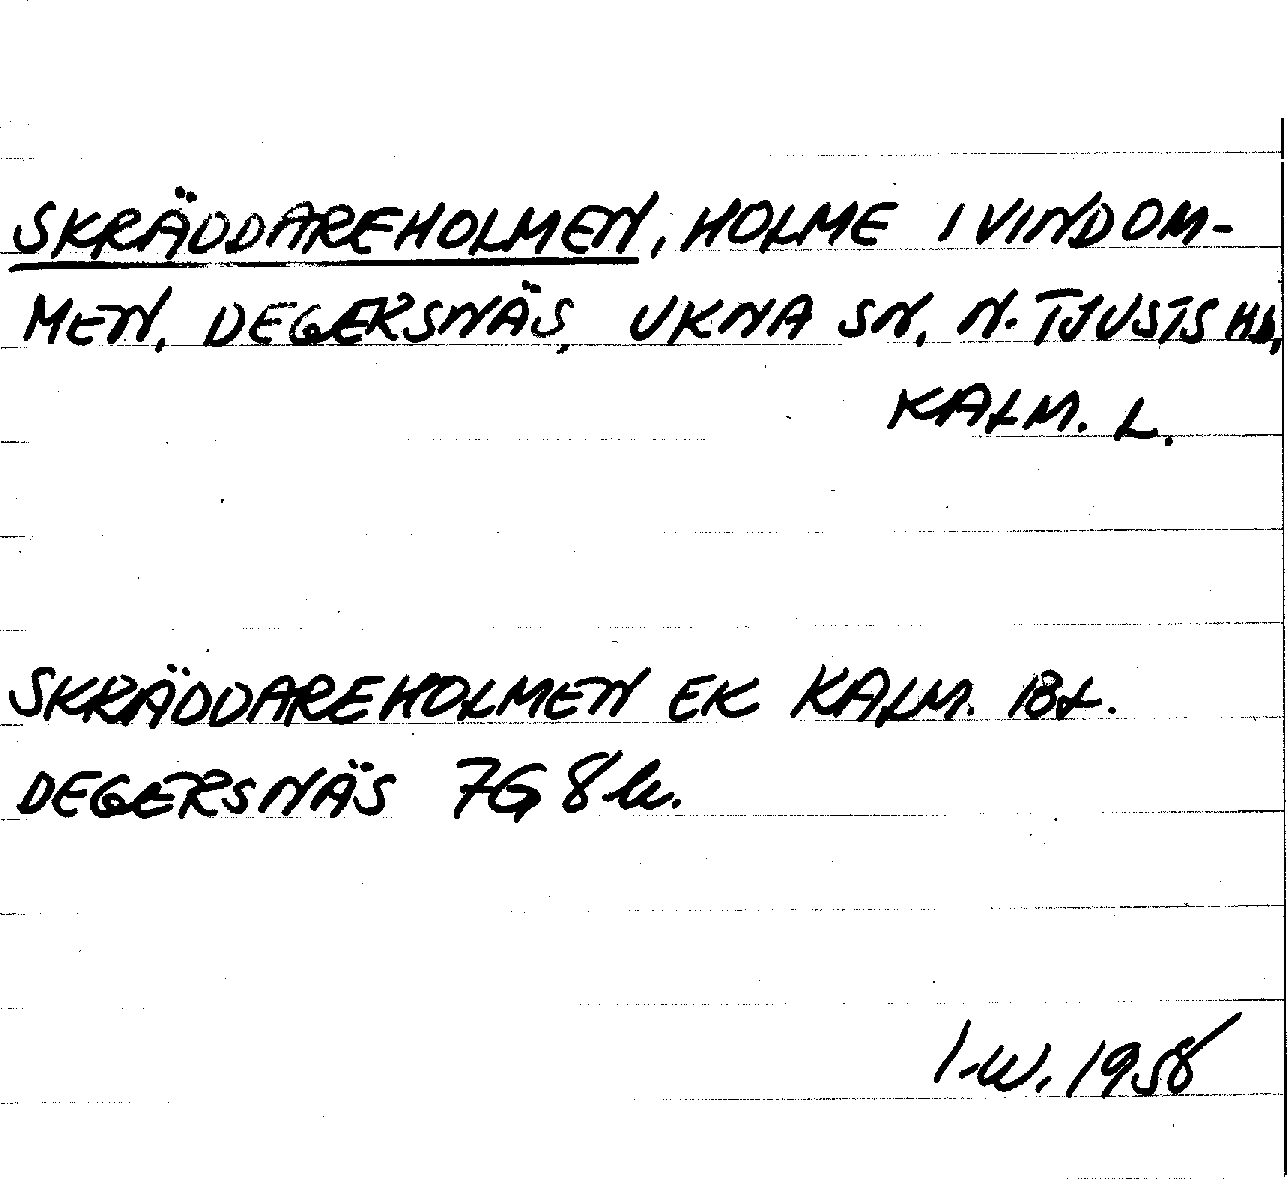 SKRÄDDAREHOLMEN, HOLME I VINDOM-
MEN, DEGERSNÄS, UKNA SN, N. TJUSTS HD,
KALM. L.
SKRÄDDAREHOLMEN EK KALM. Bl.
DEGERSNÄS 7G 8h.
I-W. 1958